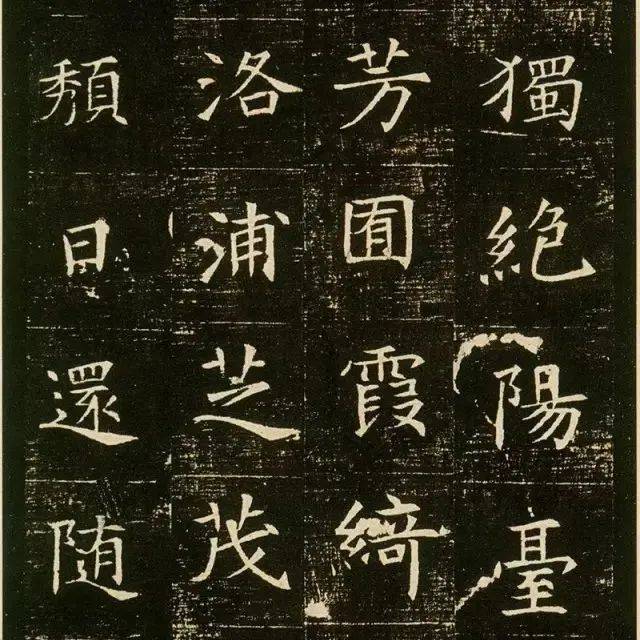 獨絶陽臺
芳囿霞綺
洛浦芝茂
頹日還随